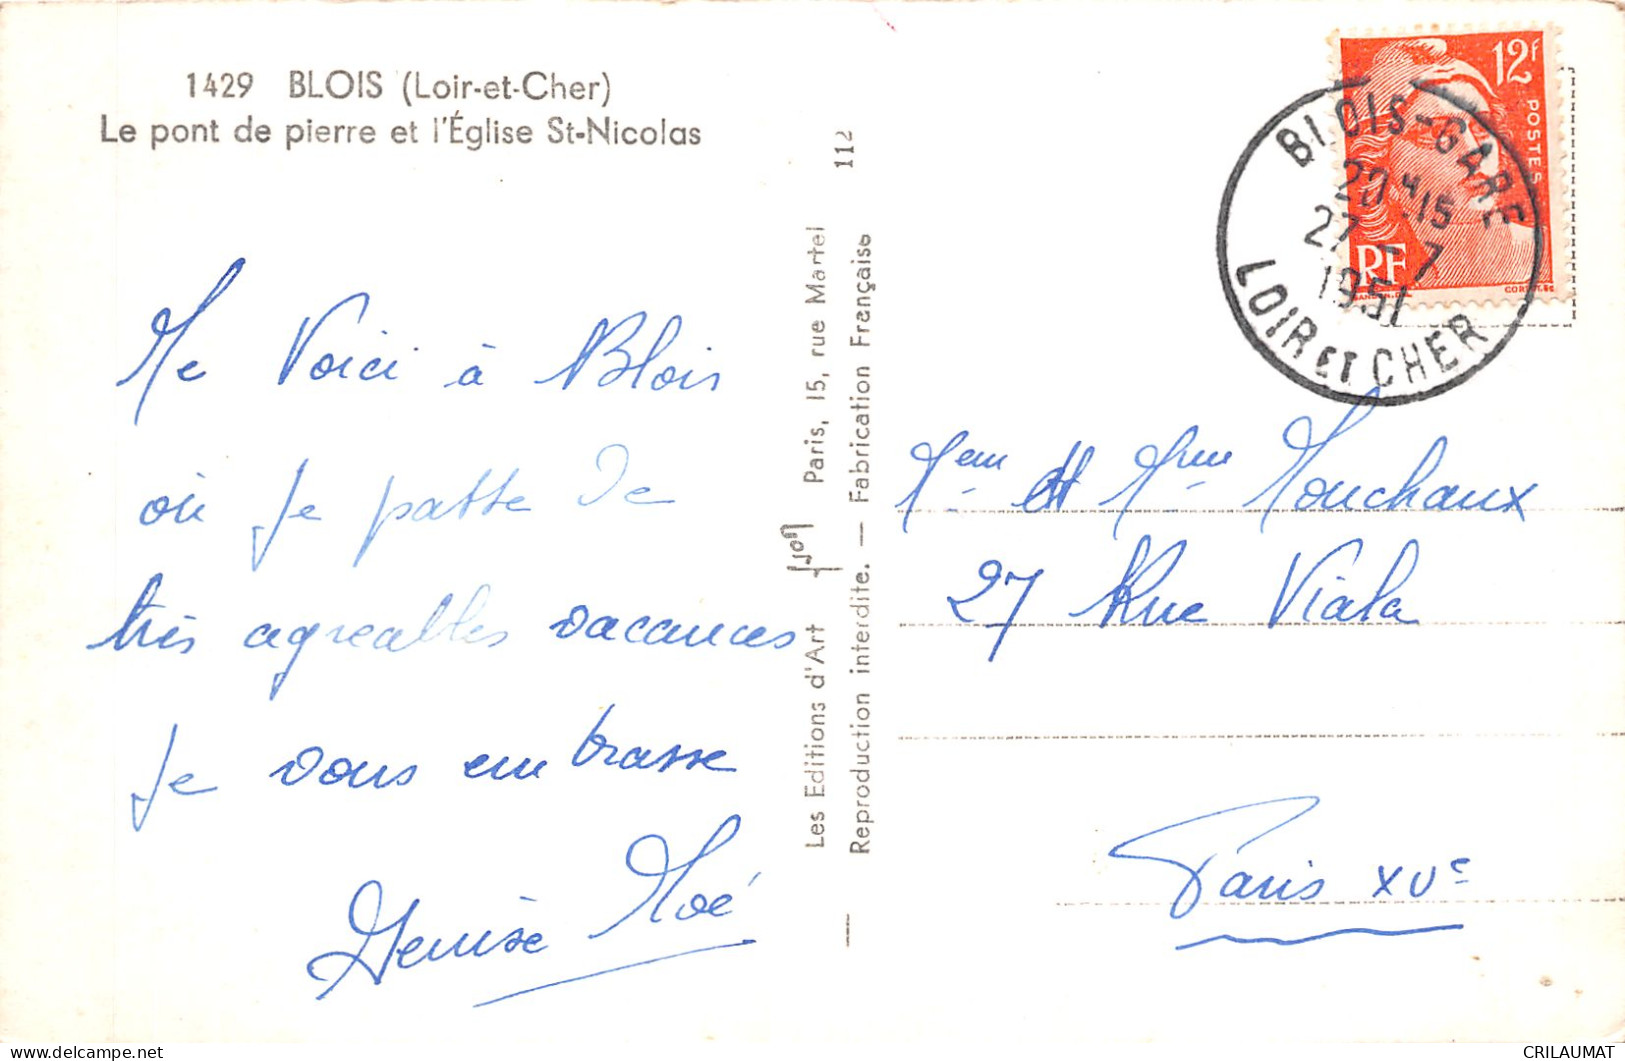 1429 BLOIS (Loir-et-Cher)
Le pont de pierre et l'Église St-Nicolas
Me Voici à Blois
où je passe de
très agreables vacances
Je vous embrasse
Denise Noé
Les Editions d'Art Yvon Paris, 15, rue Martel
Reproduction interdite. — Fabrication Française
112
12f
POSTES
RF
BLOIS-GARE
20H15
27 - 7
1951
LOIR ET CHER
27 Rue Viala
Paris XVe
delcampe.net
CRILAUMAT